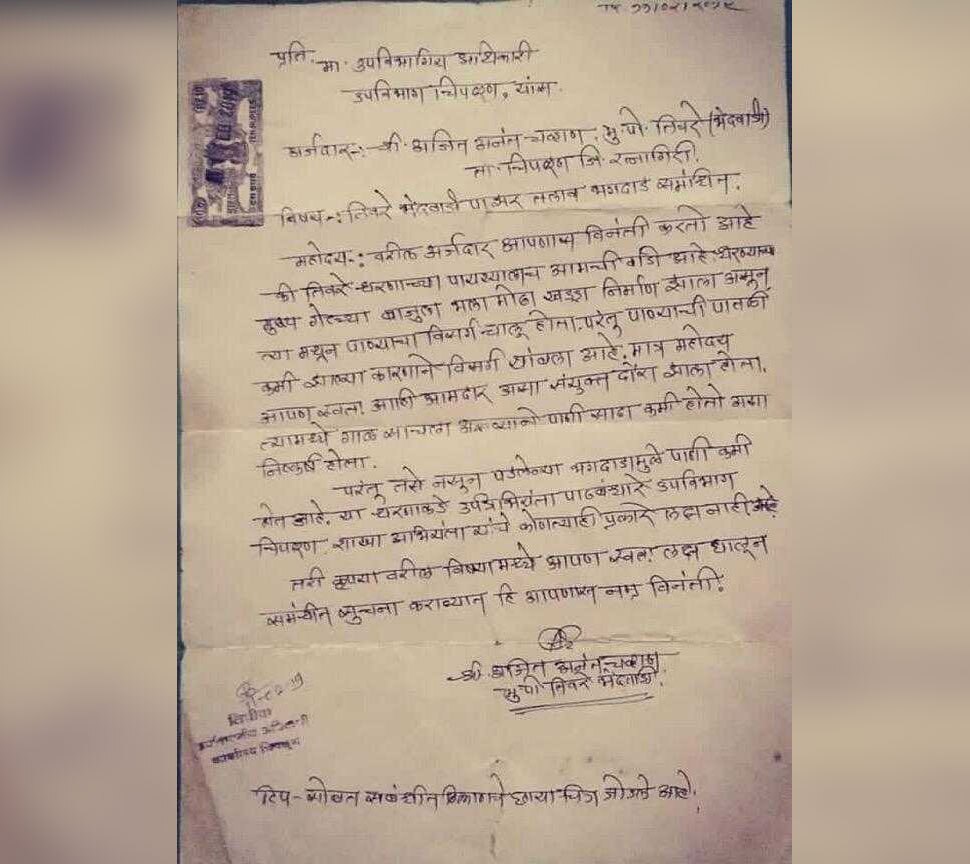 ता ११/०२/२०१९
प्रति. मा. उपविभागिय अधिकारी
उपविभाग चिपळूण, यांस.
अर्जदार :- श्री. अजित अनंत चव्हाण. मु.पो. तिवरे (भेंदवाडी)
ता. चिपळूण जि. रत्नागिरी.
विषय :- तिवरे भेंदवाडी पाझर तलाव भगदाड समंधित.
महोदय :- वरील अर्जदार आपणास विनंती करतो आहे
की तिवरे धरणाच्या पायथ्यालाच आमची वाडी आहे. धरणाच्या
मुख्य गेटच्या बाजुला भला मोठा खड्डा निर्माण झाला असून
त्या मधून पाण्याचा विसर्ग चालू होता. परंतु पाण्याची पातळी
कमी झाल्या कारणाने विसर्ग थांबला आहे. मात्र महोदय
आपण स्वता आणि आमदार असा संयुक्त दौरा झाला होता.
त्यामध्ये गाळ साचला असल्याने पाणी साठा कमी होतो असा
निष्कर्ष होता.
परंतु तसे नसून पडलेल्या भगदाडामुळे पाणी कमी
होत आहे. या धरणाकडे उपअभियंता पाटबंधारे उपविभाग
चिपळूण. शाखा अभियंता यांचे कोणत्याही प्रकारे लक्ष नाही आहे.
तरी कृपया वरील विषयामध्ये आपण स्वता लक्ष घालून
समंधीत सूचना कराव्यात हि आपणास नम्र विनंती.
श्री. अजित अनंत चव्हाण
मु.पो तिवरे भेंदवाडी.
टिप - सोबत संबंधीत ठिकाणचे छाया चित्र जोडले आहे.